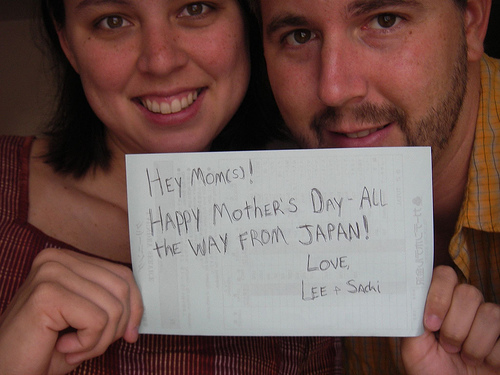 HEY MOM(S)!
HAPPY MOTHER'S DAY - ALL
THE WAY FROM JAPAN!
LOVE,
LEE + SACHI